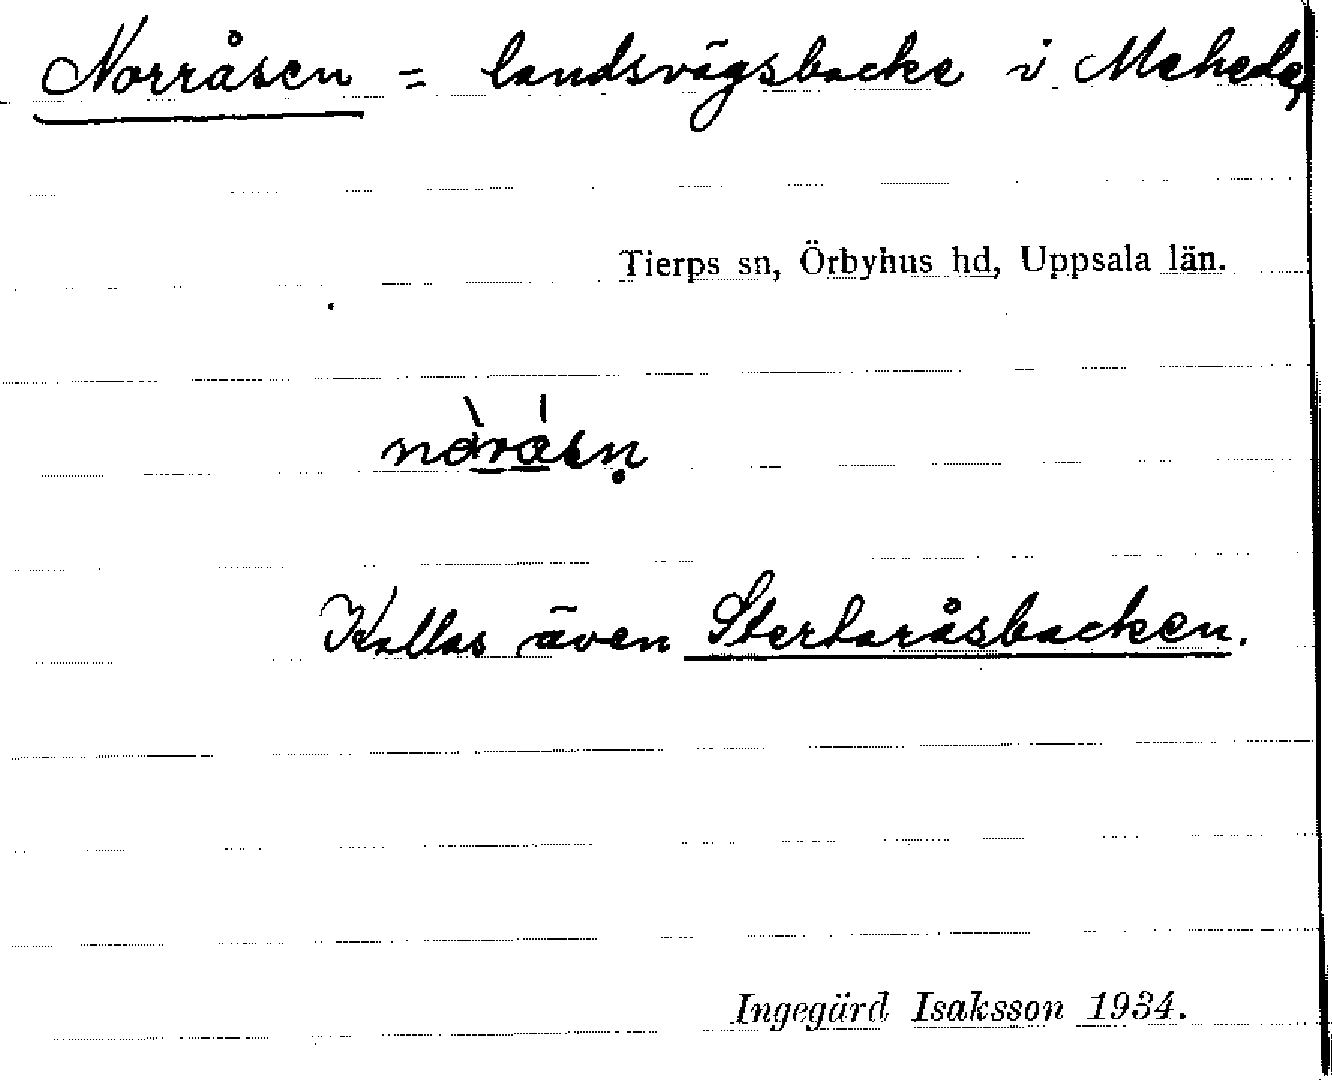 Norråsen = landsvägsbacke i Mehede,
Tierps sn, Örbyhus hd, Uppsala län.
Kallas även Stertaråsbacken.
Ingegärd Isaksson 1934.